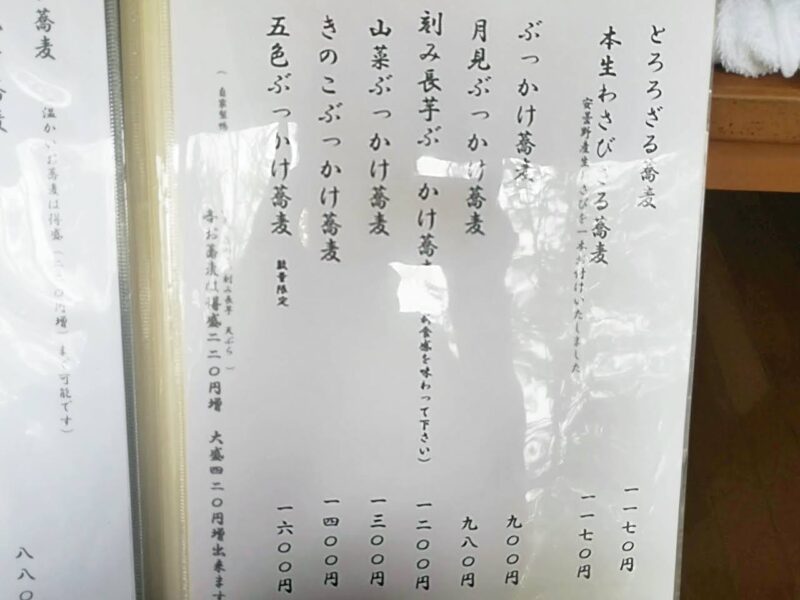 とろろざる蕎麦 一一七〇円
本生わさびざる蕎麦 一一七〇円
安曇野産生わさびを一本お付けいたしました
ぶっかけ蕎麦 九〇〇円
月見ぶっかけ蕎麦 九八〇円
刻み長芋ぶ かけ蕎 食感を味わって下さい） 一二〇〇円
山菜ぶっかけ蕎麦 一三〇〇円
きのこぶっかけ蕎麦 一四〇〇円
五色ぶっかけ蕎麦 数量限定 一六〇〇円
（自家製 刻み長芋 天ぷら）
お蕎麦は得盛二二〇円増 大盛四二〇円増出来ます
蕎麦
温かいお蕎麦は得盛（二二〇円増）まで可能です）
八八〇